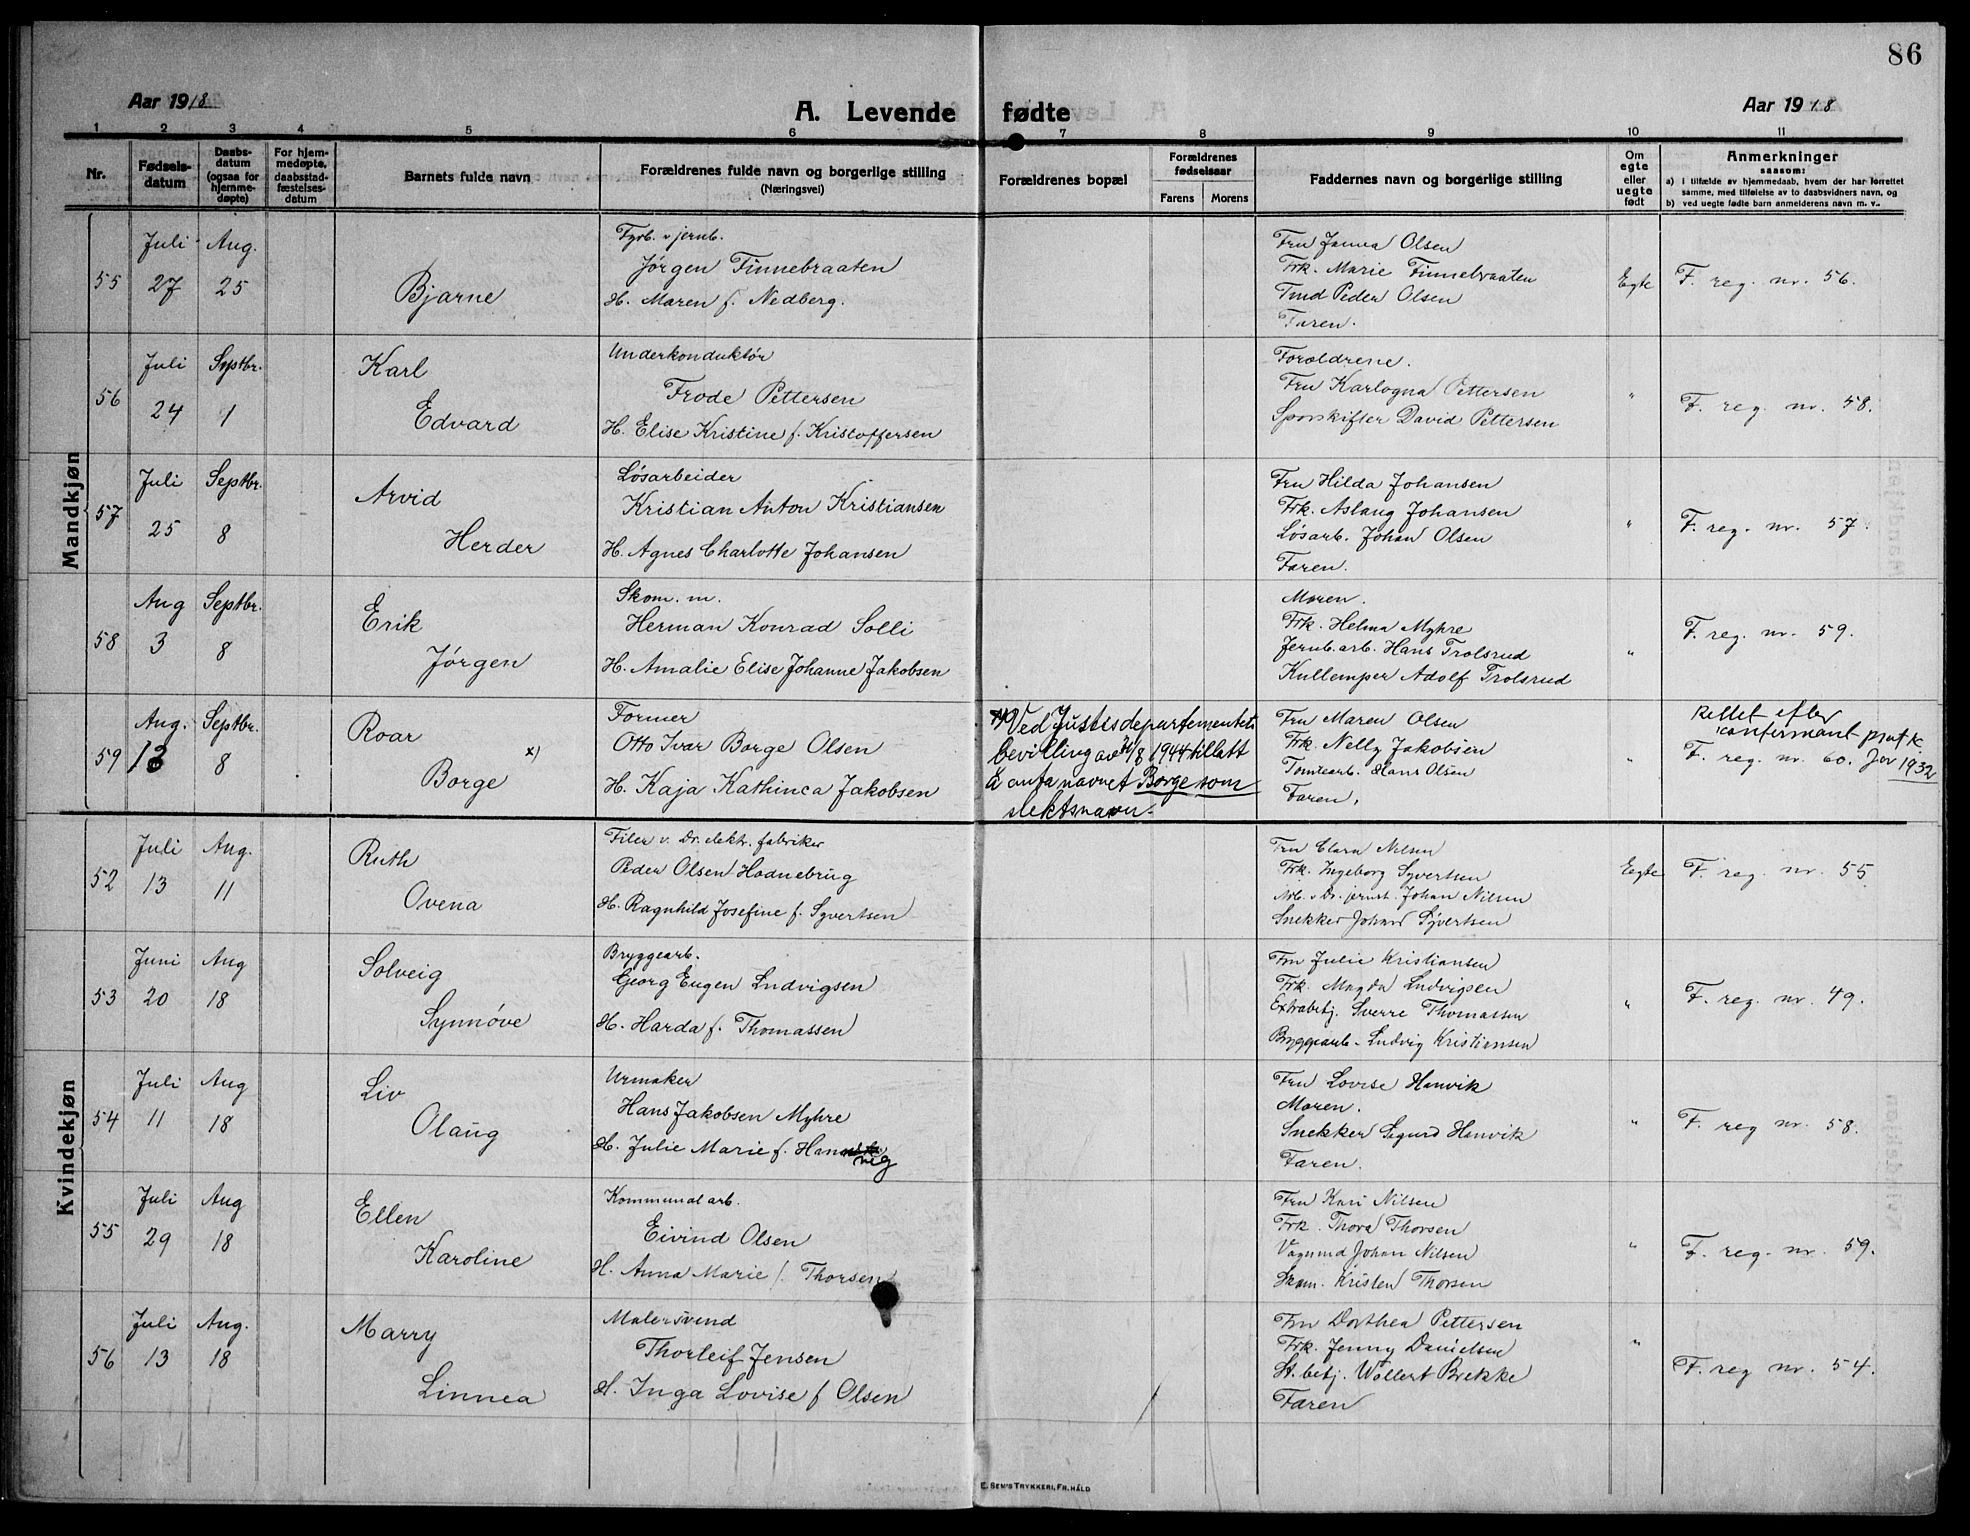 86
Aar 1918
A. Levende fødte
Aar 1918
1 2 3 4 5 6 7 8 9 10 11
Nr.
Fødsels-
datum
Daabs-
datum
(ogsaa for
hjemme-
døpte)
For hjem-
medøpte,
daabsstad-
fæstelses-
datum
Barnets fulde navn
Forældrenes fulde navn og borgerlige stilling
(Næringsvei)
Forældrenes bopæl
Forældrenes
fødselsaar
Farens Morens
Faddernes navn og borgerlige stilling
Om
egte
eller
uegte
født
Anmerkninger
saasom:
a) i tilfælde av hjemmedaab, hvem der har forrettet
samme, med tilføielse av to daabsvidners navn, og
b) ved uegte fødte barn anmelderens navn m. v..
Mandkjøn
55
Juli 27
Aug. 25
Bjarne
Fyrb. v jernb.
Jørgen Finnebraaten
H. Maren f. Nedberg.
Fru Janna Olsen
Frk. Marie Finnebraaten
Tmd Peder Olsen
Faren.
Egte
F. reg. nr. 56.
56
Juli 24
Septbr. 1
Karl
Edvard
Underkonduktör
Frode Pettersen
H. Elise Kristine f. Kristoffersen
Forældrene.
Fru Karlogna Pettersen
Sporskifter David Pettersen
"
F. reg. nr. 58.
57
Juli 25
Septbr. 8
Arvid
Herder
Løsarbeider
Kristian Anton Kristiansen
H. Agnes Charlotte Johansen
Fru Hilda Johansen
Frk. Aslaug Johansen
Løsarb. Johan Olsen
Faren.
"
F. reg. nr. 57.
58
Aug 3
Septbr. 8
Erik
Jørgen
Skom. m.
Herman Konrad Solli
H. Amalie Elise Johanne Jakobsen
Moren.
Frk. Helma Myhre
Jernb. arb. Hans Trolsrud
Kullemper Adolf Trolsrud
"
F. reg. nr. 59.
59
Aug. 13
Septbr. 8
Roar
Borge x)
Former
Otto Ivar Borge Olsen
H. Kaja Kathinca Jakobsen
x) Ved Justisdepartementets
bevilling av 1944 tillatt
å anta navnet Borge som
slektsnavn.
Fru Maren Olsen
Frk. Nelly Jakobsen
Tomtearb. Hans Olsen
Faren.
"
Rettet efter
konfirmant prot.k
F. reg. nr. 60. Jar 1932
Kvindekjøn
52
Juli 13
Aug. 11
Ruth
Ovena
Filer v. Dr. elektr. fabriker
Peder Olsen Hodnebrug
H. Ragnhild Josefine f. Syvertsen
Fru Clara Nilsen
Frk. Ingeborg Syvertsen
Arb. v Dr. jernst. Johan Nilsen
Snekker Johard Syvertsen
Egte
F. reg. nr. 55
53
Juni 20
Aug 18
Solveig
Synnöve
Bryggearb.
Georg Eugen Ludvigsen
H. Harda f. Thomassen
Fru Julie Kristiansen
Frk. Magda Ludvigsen
Extrabetj. Sverre Thomassen
Bryggearb. Ludvig Kristiansen
"
F. reg. nr. 49.
54
Juli 11
Aug 18
Liv
Olaug
Urmaker
Hans Jakobsen Myhre
H. Julie Marie f. Hanvig
Fru Lovise Hanvik
Moren.
Snekker Sigurd Hanvik
Faren.
"
F. reg nr. 58.
55
Juli 29
Aug 18
Ellen
Karoline
Kommunal arb.
Eivind Olsen
H. Anna Marie f. Thorsen
Fru Kari Nilsen
Frk. Thora Thorsen
Vognmd Johan Nilsen
Skom. Kristen Thorsen
"
F. reg. nr. 59.
56
Juli 13
Aug. 18
Marry
Linnea
Malersvend
Thorleif Jensen
H. Inga Lovise f Olsen
Fru Dorthea Pettersen
Frk. Jenny Danielsen
St. betj. Wollert Brekke
Faren
"
F. reg nr. 54.
E. SEM'S TRYKKERI, FR.HALD